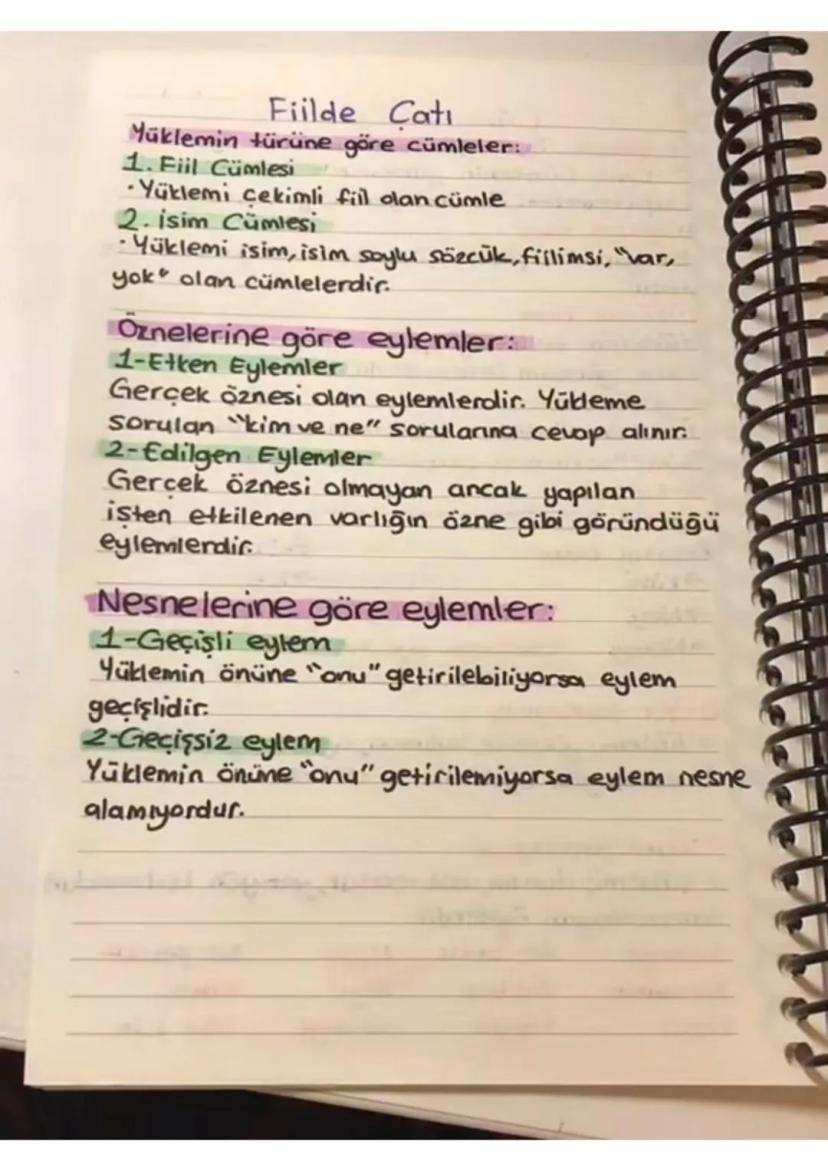 Fiilde Çatı
Yüklemin türüne göre cümleler:
1. Fiil Cümlesi
• Yüklemi çekimli fiil olan cümle
2. İsim Cümlesi
• Yüklemi isim, isim soylu sözcük, fiilimsi, "var,
yok" olan cümlelerdir.
Öznelerine göre eylemler:
1-Etken Eylemler
Gerçek öznesi olan eylemlerdir. Yükleme
sorulan "kim ve ne" sorularına cevap alınır.
2-Edilgen Eylemler
Gerçek öznesi olmayan ancak yapılan
işten etkilenen varlığın özne gibi göründüğü
eylemlerdir.
Nesnelerine göre eylemler:
1-Geçişli eylem
Yüklemin önüne "onu" getirilebiliyorsa eylem
geçişlidir.
2-Geçişsiz eylem
Yüklemin önüne "onu" getirilemiyorsa eylem nesne
alamıyordur.